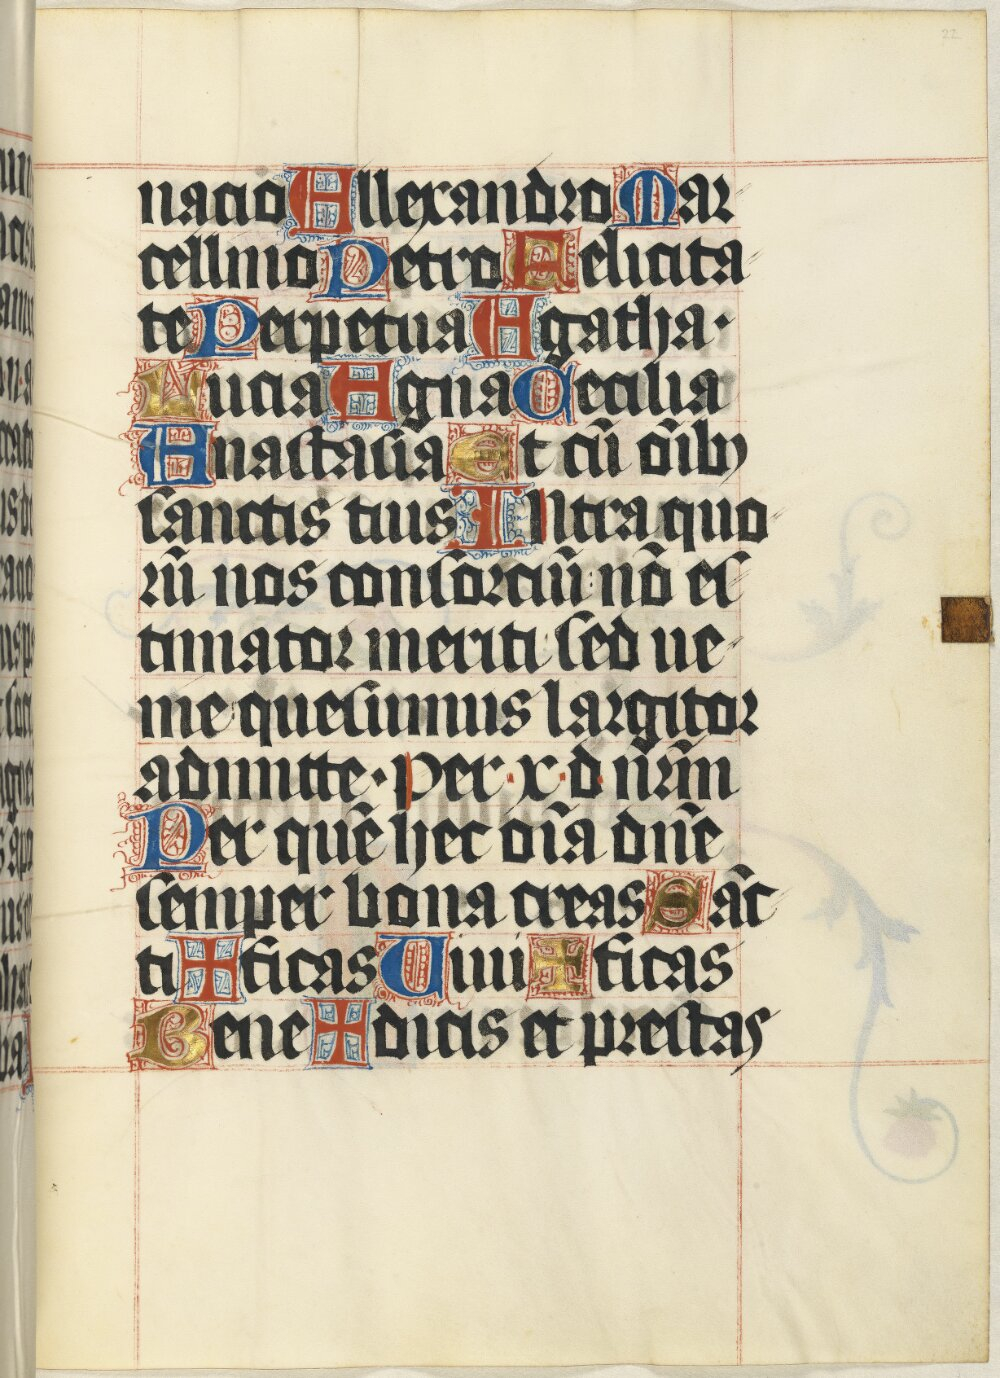 22
nacio Allexandro Mar
cellino Petro Felicita
te Perpetua Agatha·
Lucia Agna Cecilia
Anastasia Et cū oīb9
sanctis tuis Intra quo
rū nos consorciū: nō es
timator meriti sed ue
nie quesumus largitor
admitte· per·x·d·nr̄m
Per quē hec oīa dn̄e
semper bona creas Sāc
ti ✠ ficas Uiui ✠ ficas
Bene ✠ dicis et prestas